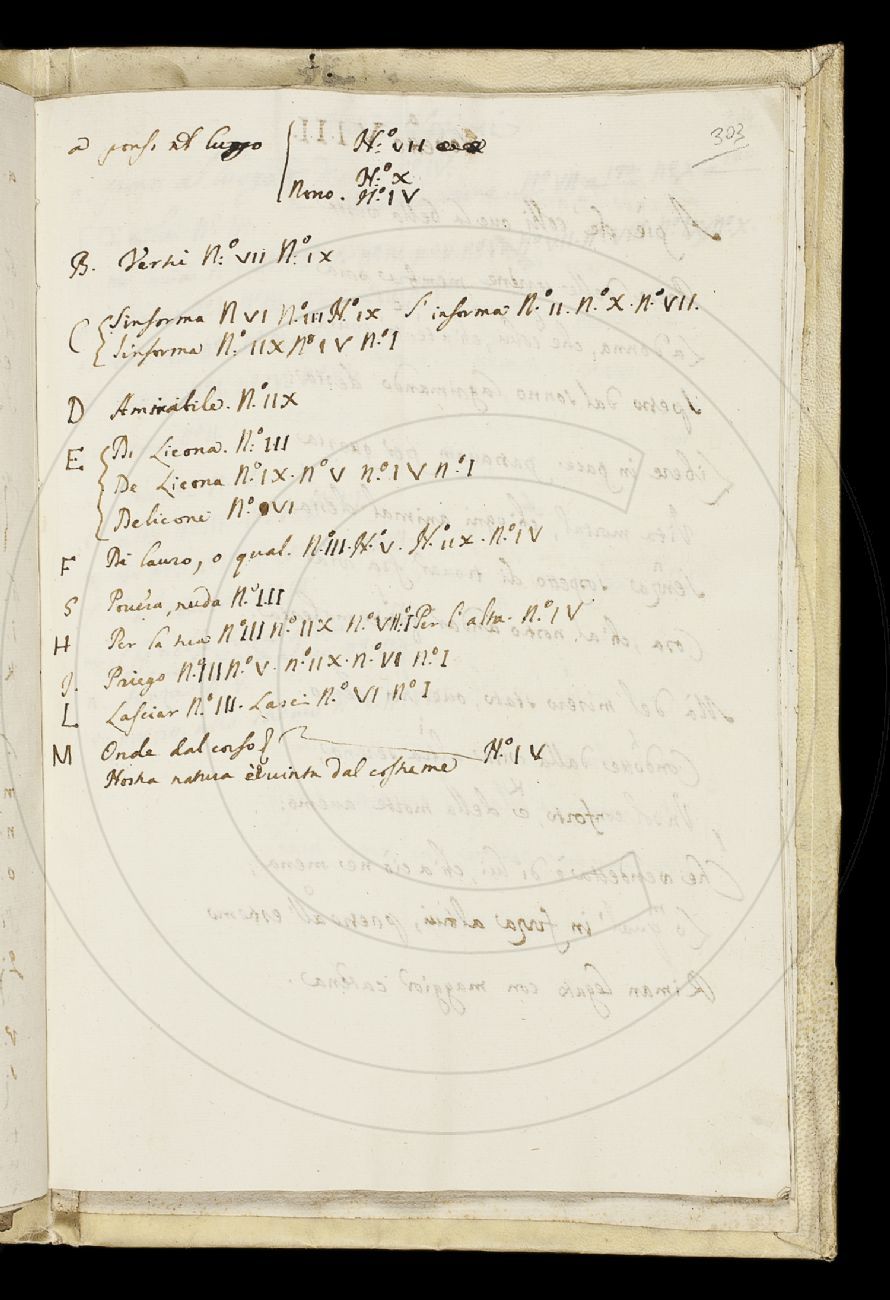 303
a pens. nel luggo { N.º VII
N.º X
nono. N.º IV
B. Versi N.º VII N.º IX
C { Sinforma N VI N.º III N.º IX S' informa N.º II. N.º X. N.º VII.
Sinforma N.º IIX N.º IV N.º I
D Amirabile. N.º IIX
E { Di Licona. N.º III
De Licona N.º IX. N.º V N.º IV N.º I
Delicone N.º VI
F Di lauro, o qual. N.º III. N.º V. N.º IIX. N.º IV
G Povera, nuda N.º III
H Per la tua N.º III N.º IIX N.º VII. N.º I Per l'alta. N.º IV
J. Priego N.º III N.º V. N.º IIX. N.º VI N.º I
L Lasciar N.º III. Lasci N.º VI N.º I
M Onde dal corso }
Nostra natura è vinta dal costume N.º IV